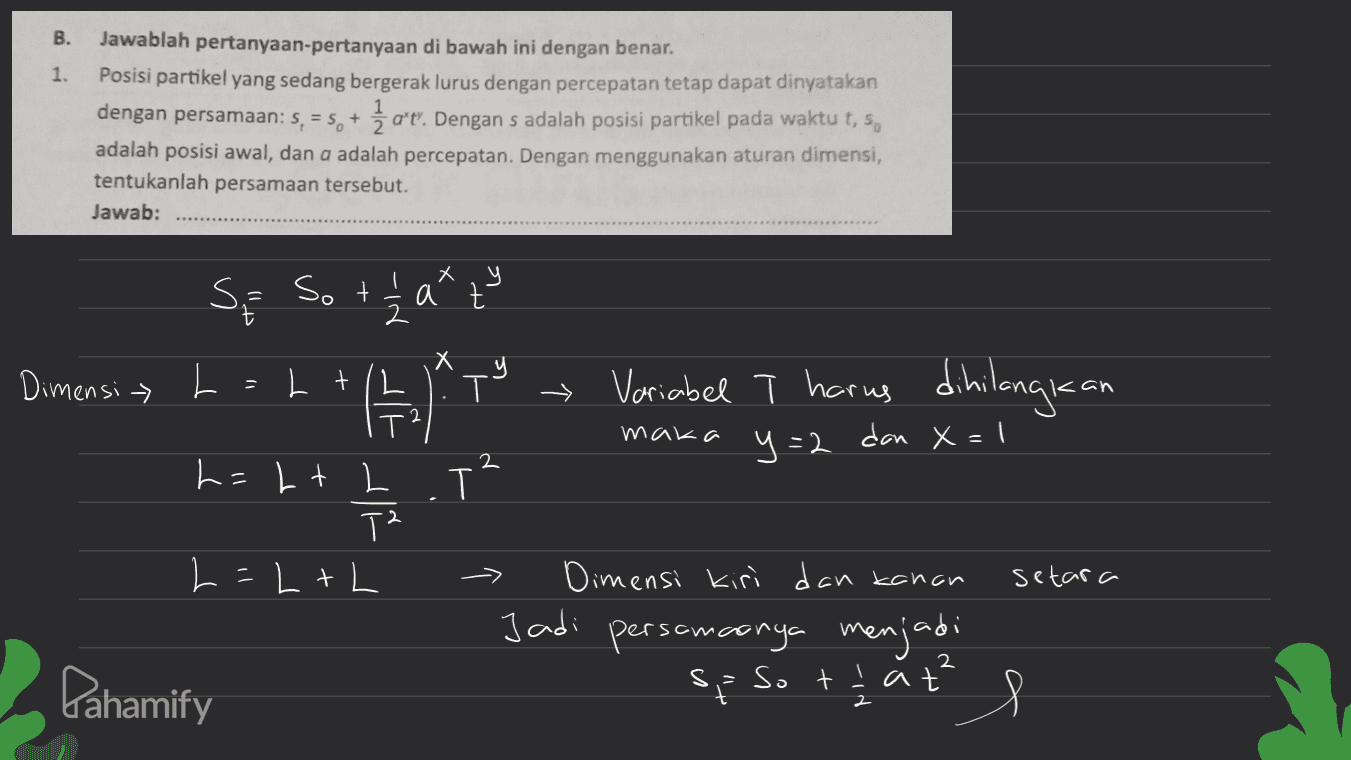 B. Jawablah pertanyaan-pertanyaan di bawah ini dengan benar.
1. Posisi partikel yang sedang bergerak lurus dengan percepatan tetap dapat dinyatakan
dengan persamaan: sₜ = s₀ + 1/2 aˣtʸ. Dengan s adalah posisi partikel pada waktu t, s₀
adalah posisi awal, dan a adalah percepatan. Dengan menggunakan aturan dimensi,
tentukanlah persamaan tersebut.
Jawab: ........................................................................
Sₜ = S₀ + 1/2 aˣ tʸ
Dimensi → L = L + (L/T²)ˣ . Tʸ → Variabel T harus dihilangkan
maka y = 2 dan x = 1
L = L + L/T² . T²
L = L + L → Dimensi kiri dan kanan setara
Jadi persamaanya menjadi
sₜ = s₀ + 1/2 a t²
Pahamify